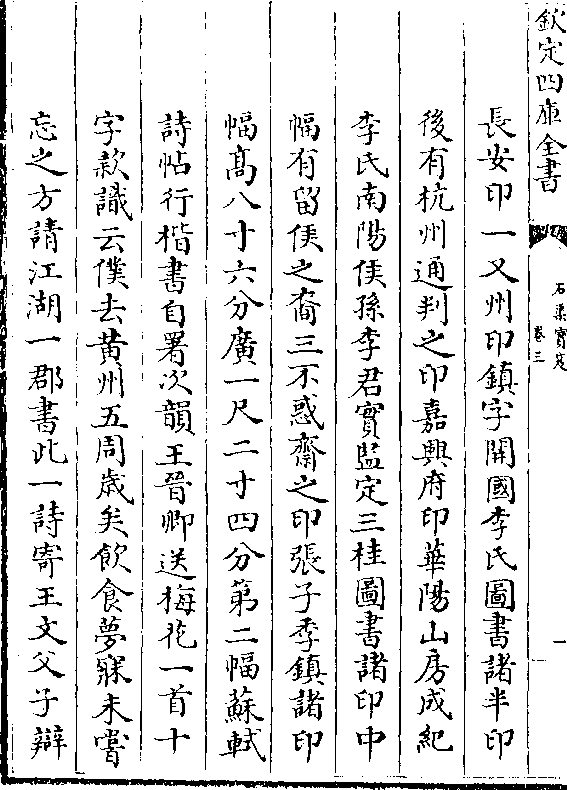 欽定四庫全書
石渠寳笈
卷三
長安印一又州印鎮字開國李氏圖書諸半印
後有杭州通判之印嘉興府印華陽山房成紀
李氏南陽侯孫李君實監定三桂圖書諸印中
幅有留侯之裔三不惑齋之印張子季鎮諸印
幅髙八寸六分廣一尺二寸四分第二幅蘇軾
詩帖行楷書自署次韻王晉卿送梅花一首十
字款識云僕去黄州五周歳矣飲食夢寐未嘗
忘之方請江湖一郡書此一詩寄王文父子辯